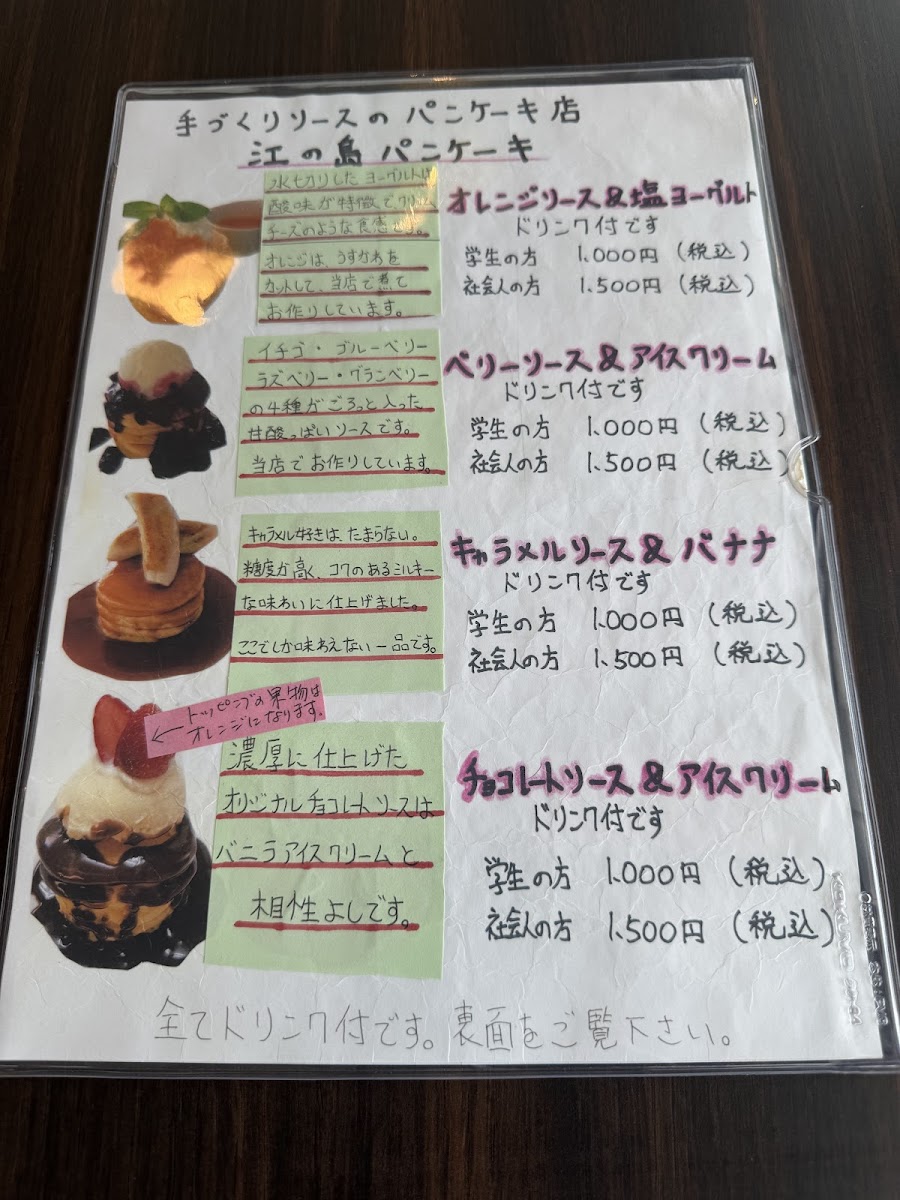 手づくりソースのパンケーキ店
江の島パンケーキ
水切りしたヨーグルトは
酸味が特徴でクリーム
チーズのような食感です。
オレンジは、うすかわを
カットして、当店で煮て
お作りしています。
オレンジソース&塩ヨーグルト
ドリンク付です
学生の方 1.000円 (税込)
社会人の方 1.500円 (税込)
イチゴ・ブルーベリー
ラズベリー・クランベリー
の4種がごろっと入った
甘酸っぱいソースです。
当店でお作りしています。
ベリーソース&アイスクリーム
ドリンク付です
学生の方 1.000円 (税込)
社会人の方 1.500円 (税込)
キャラメル好きは、たまらない。
糖度が高く、コクのあるミルキー
な味わいに仕上げました。
ここでしか味わえない一品です。
キャラメルソース&バナナ
ドリンク付です
学生の方 1.000円 (税込)
社会人の方 1.500円 (税込)
←トッピングの果物は
オレンジになります。
濃厚に仕上げた
オリジナルチョコレートソースは
バニラアイスクリームと
相性よしです。
チョコレートソース&アイスクリーム
ドリンク付です
学生の方 1.000円 (税込)
社会人の方 1.500円 (税込)
全てドリンク付です。裏面をご覧下さい。